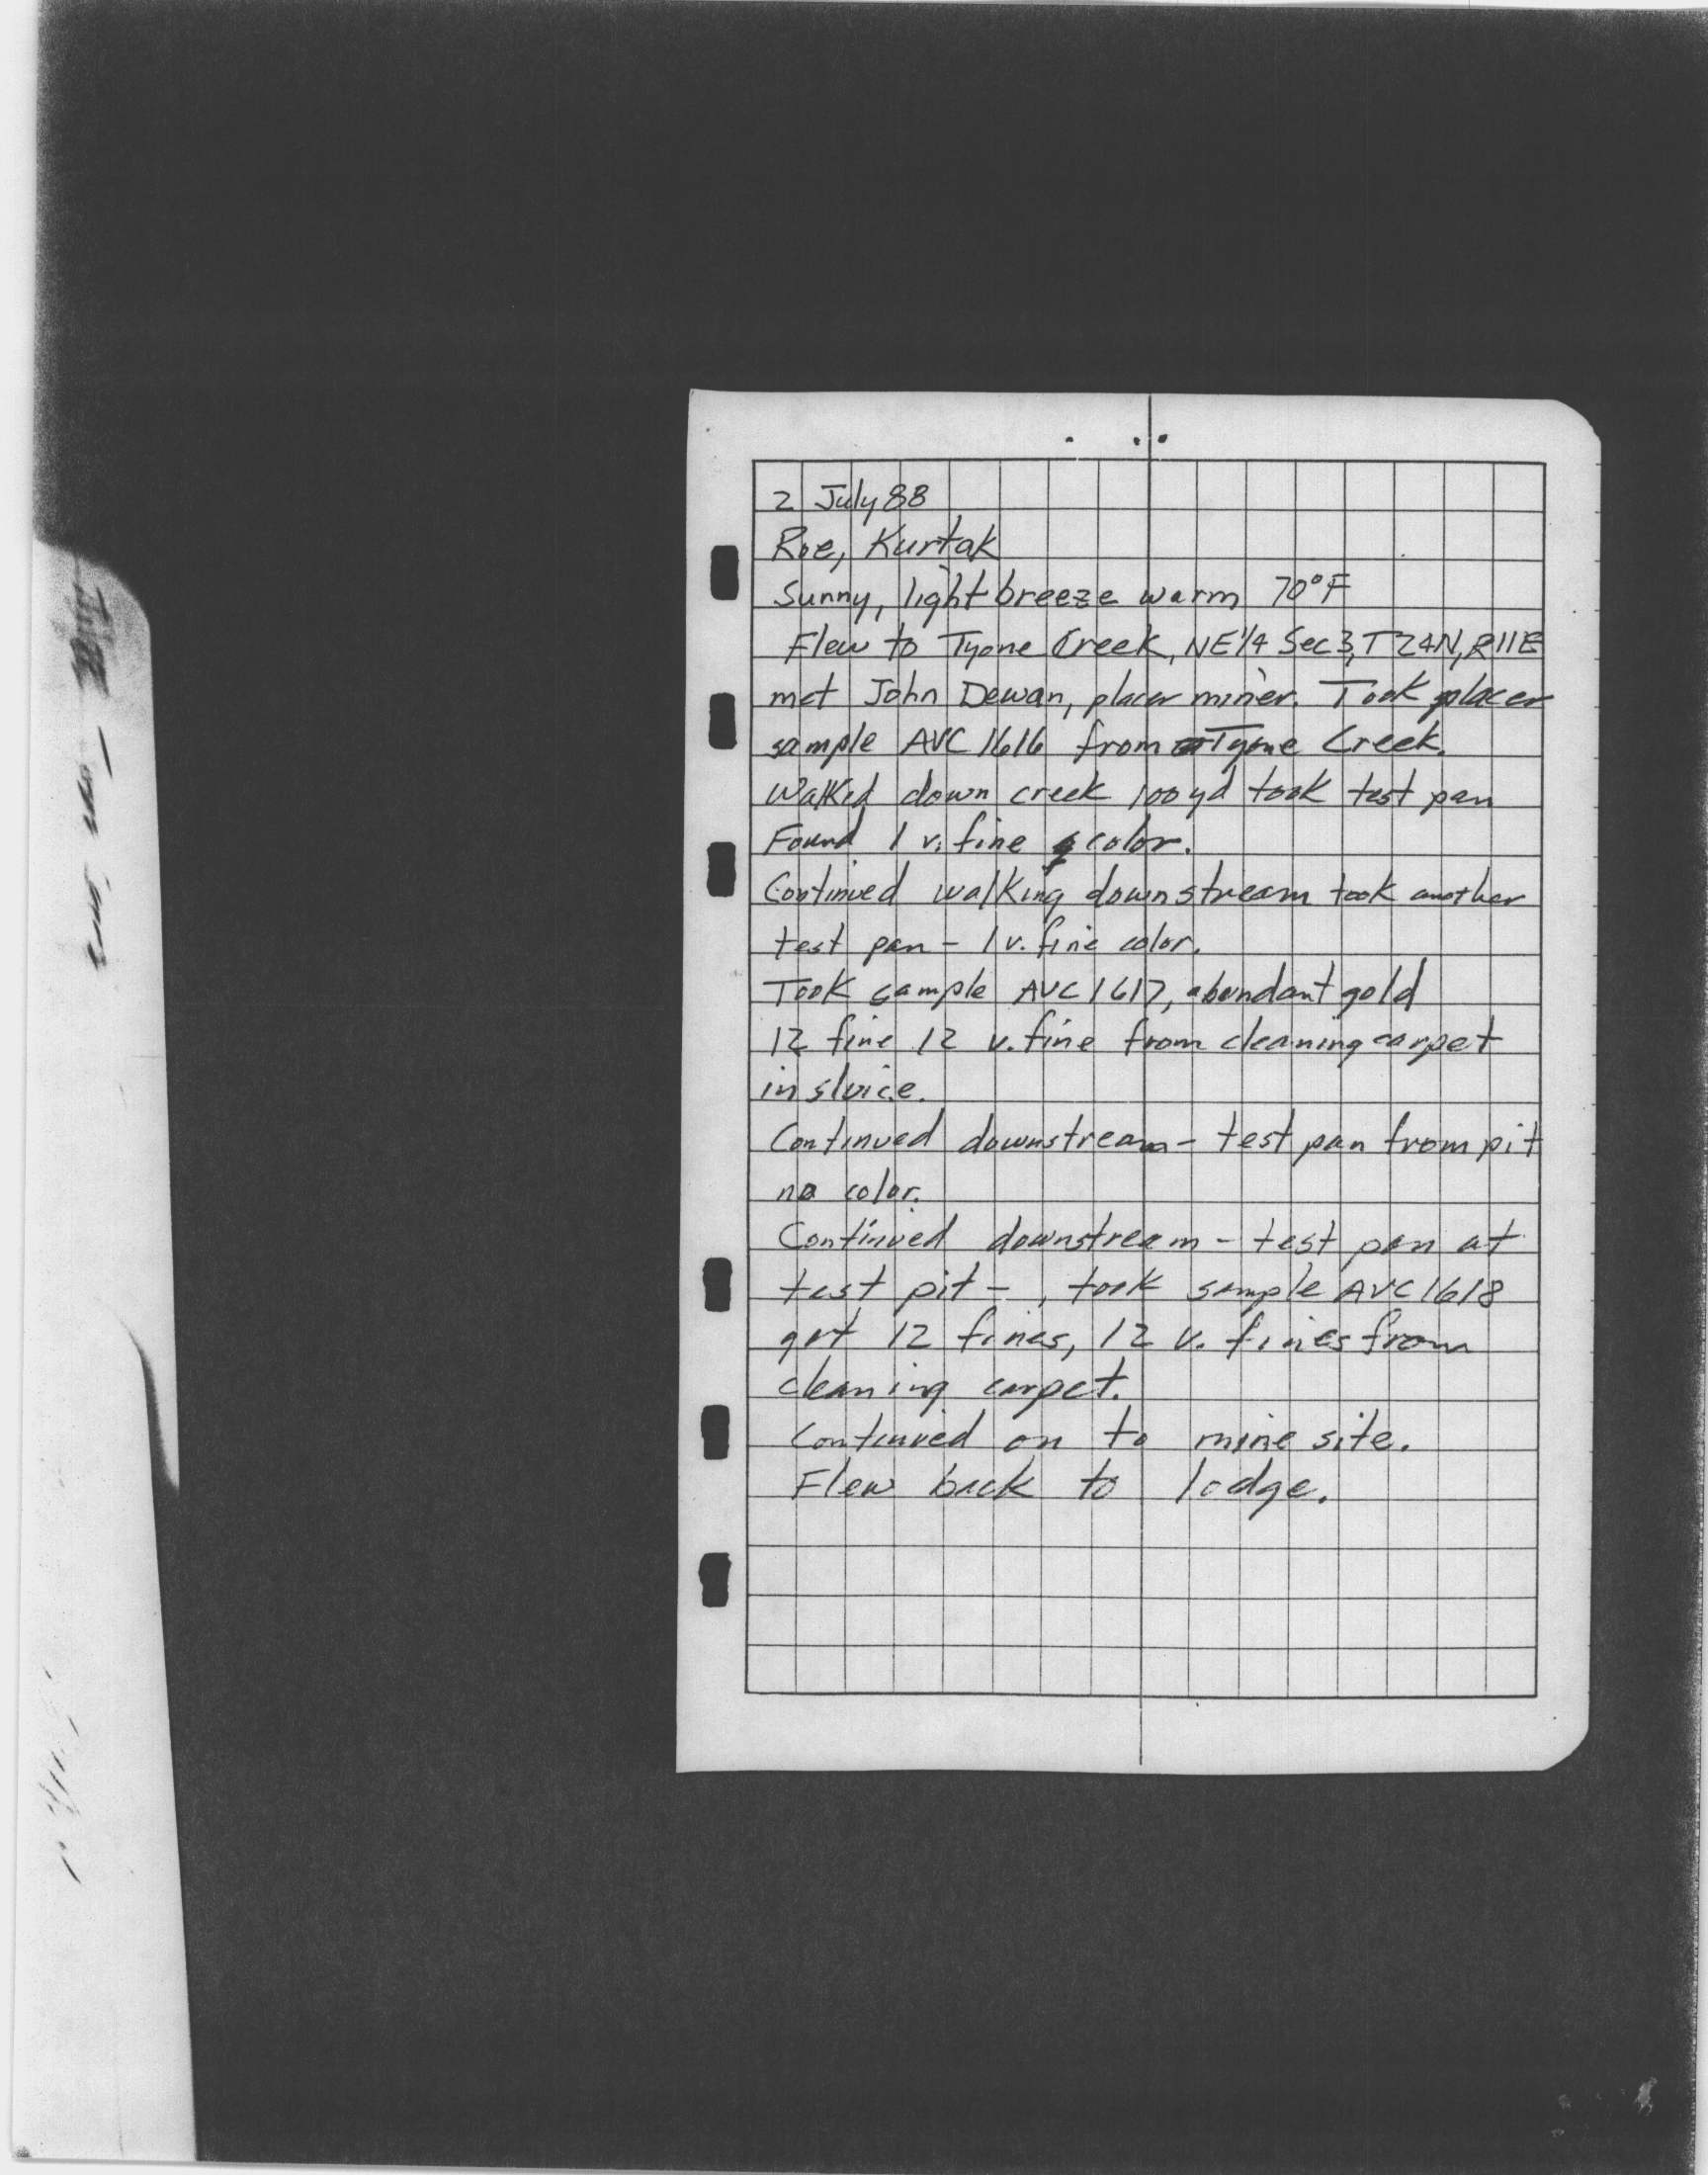 2 July 88
Roe, Kurtak
Sunny, light breeze warm 70°F
Flew to Tyone Creek, NE 1/4 Sec 3, T24N, R11E
met John Dewan, placer miner. Took placer
sample AVC 1616 from Tyone Creek.
Walked down creek 100 yd took test pan
Found 1 v. fine color.
Continued walking downstream took another
test pan - 1 v. fine color.
Took sample AVC 1617, abundant gold
12 fine 12 v. fine from cleaning carpet
in sluice.
Continued downstream - test pan from pit
no color.
Continued downstream - test pan at
test pit - , took sample AVC 1618
got 12 fines, 12 v. fines from
cleaning carpet.
Continued on to mine site.
Flew back to lodge.